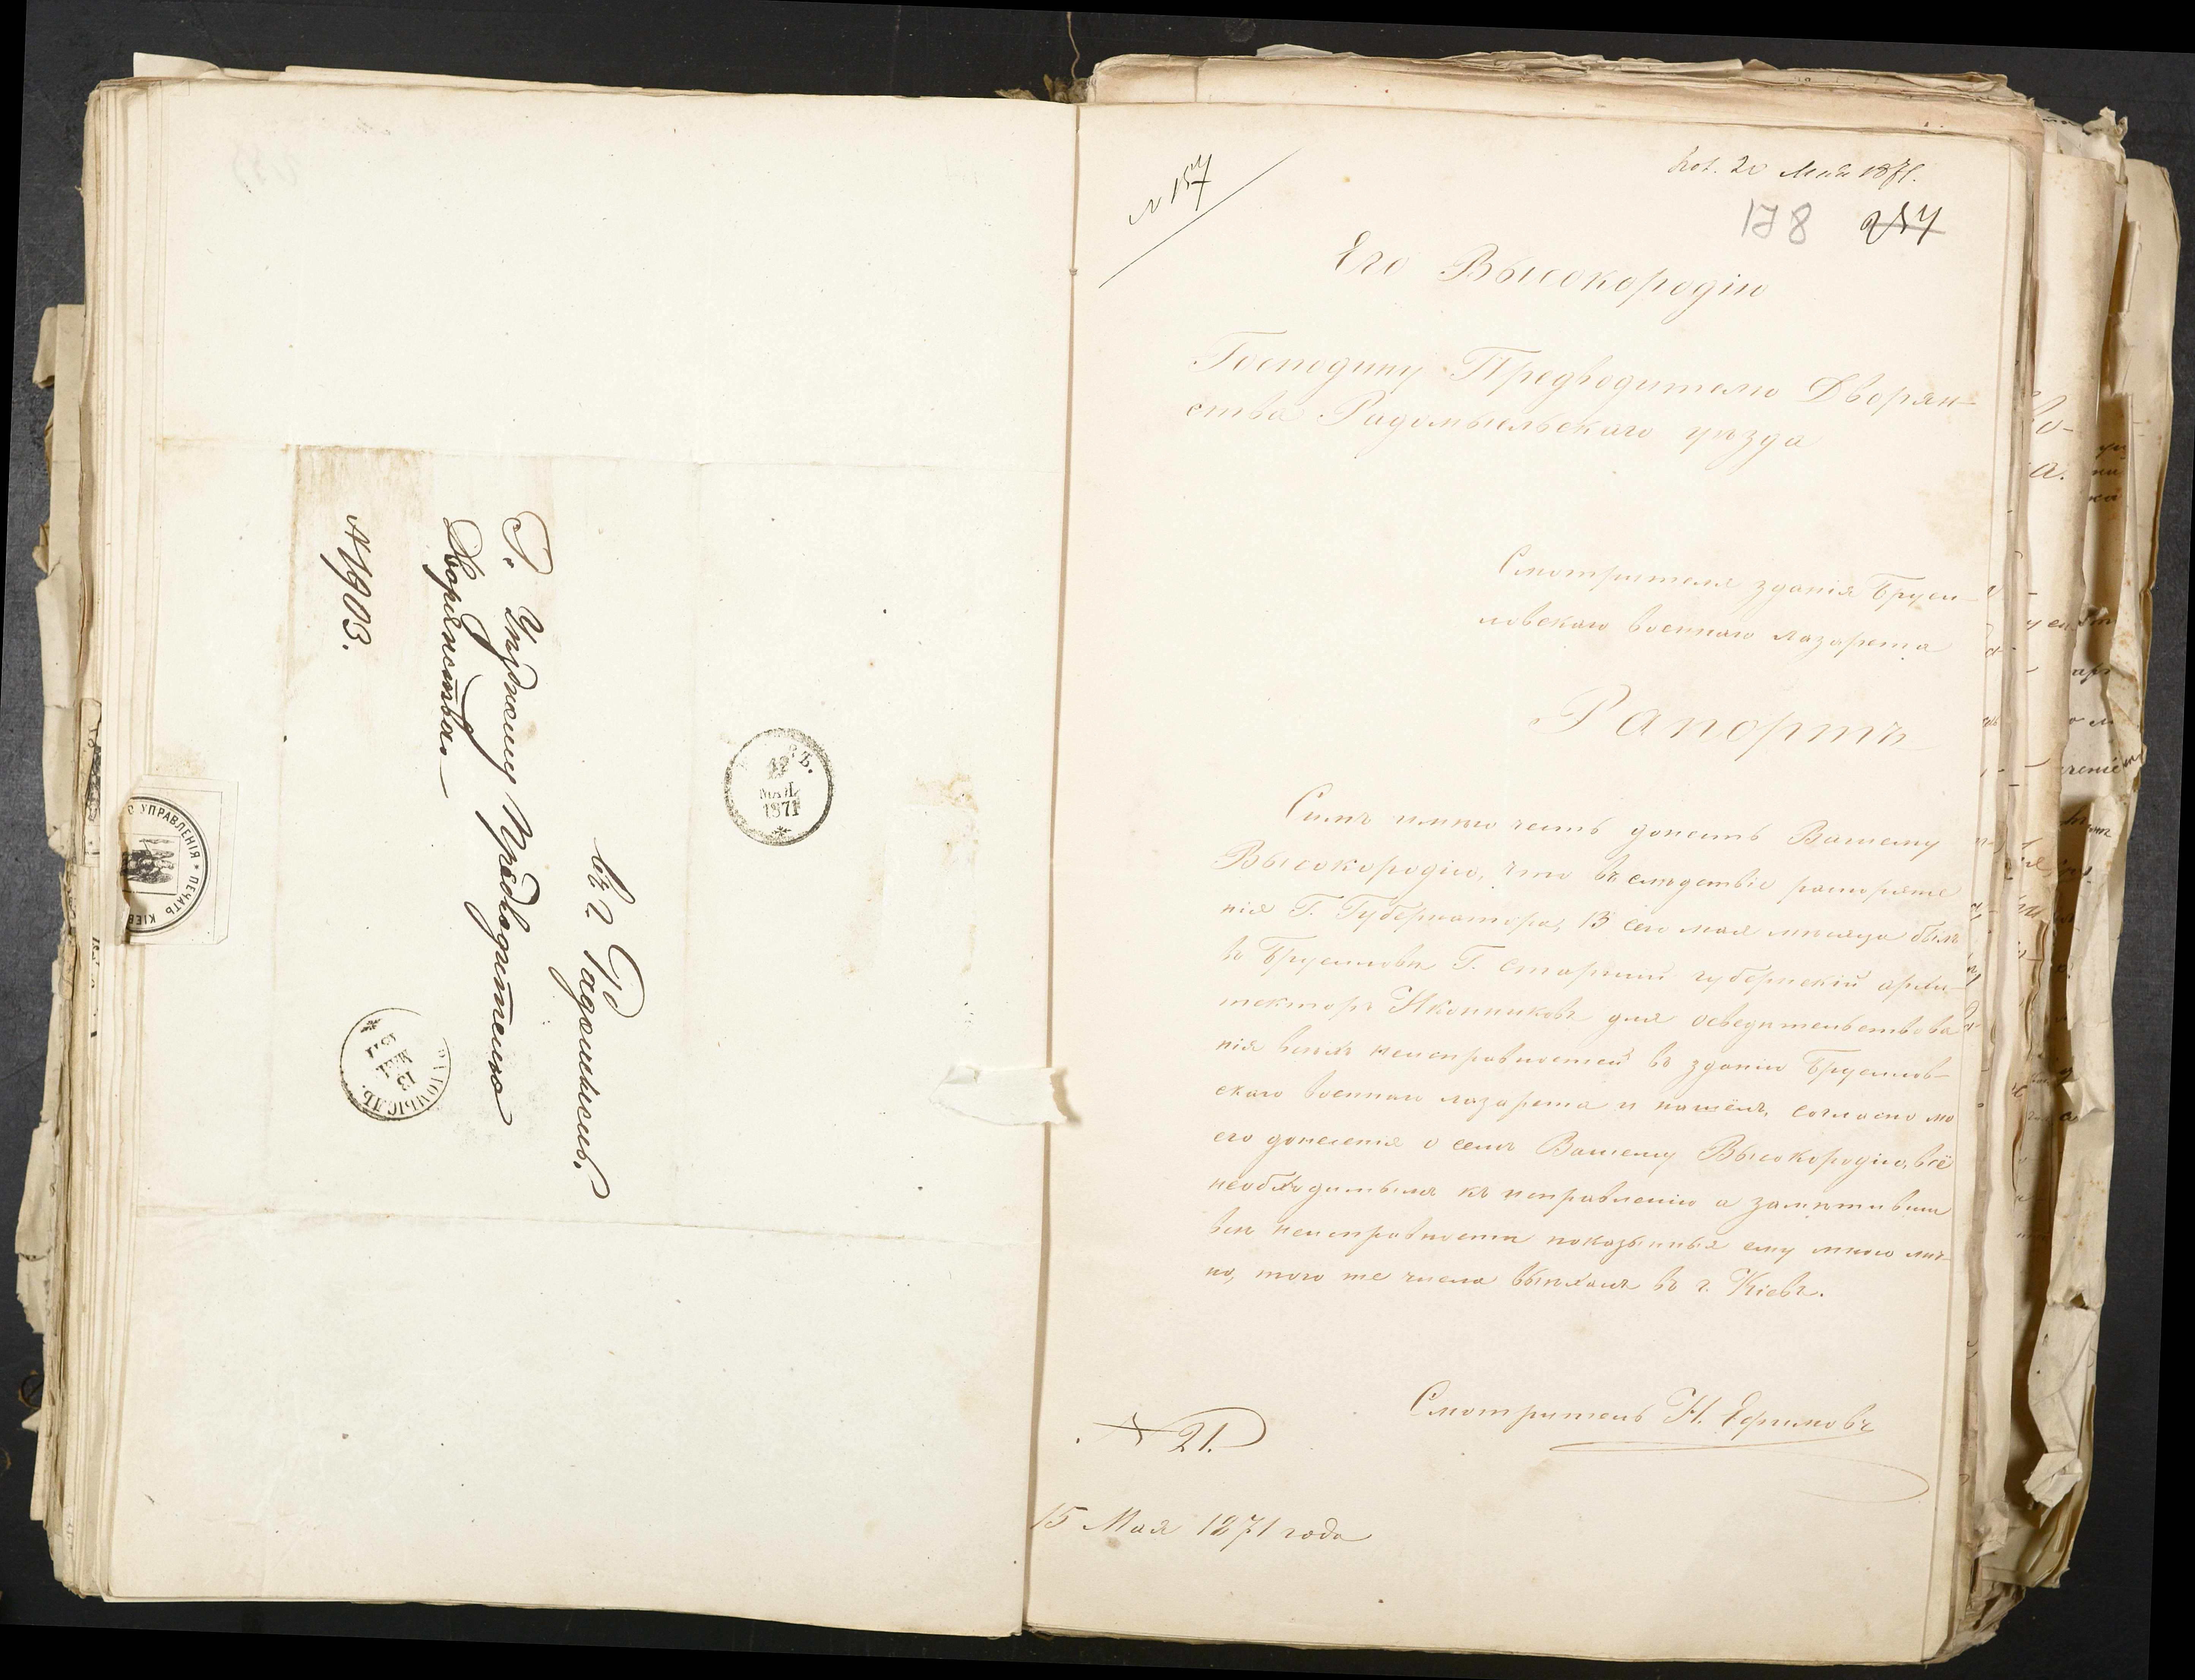 Г. Уѣздному Предводителю
Дворянства.
№ 1903.
въ г. Радомысль.
МАЯ
1871
РАДОМЫСЛЬ.
13
МАЯ
1871
УПРАВЛЕНІЯ * ПЕЧАТЬ КІЕВ
№ 157
20 Мая 1871.
178 257
Его Высокородію
Господину Предводителю Дворян-
ства Радомысльскаго уѣзда
Смотрителя зданія Бруси-
ловскаго военнаго лазарета
Рапортъ
Симъ имѣю честь донесть Вашему
Высокородію, что въ слѣдствіе распоряже
нія Г. Губернатора, 13 сего мая мѣсяца былъ
въ Брусиловѣ Г. старшій губернскій архи-
текторъ Иконниковъ для освидѣтельствова
нія всѣхъ неисправностей въ зданіи Брусилов-
скаго военнаго лазарета и нашёлъ, согласно мо
его донесенія о семъ Вашему Высокородію, всё
необходимымъ къ исправленію а замѣтивши
всѣ неисправности показанныя ему мною лич-
но, того же числа выѣхалъ въ г. Кіевъ.
Смотритель Н. Ефимовъ
№ 21.
15 Мая 1871 года